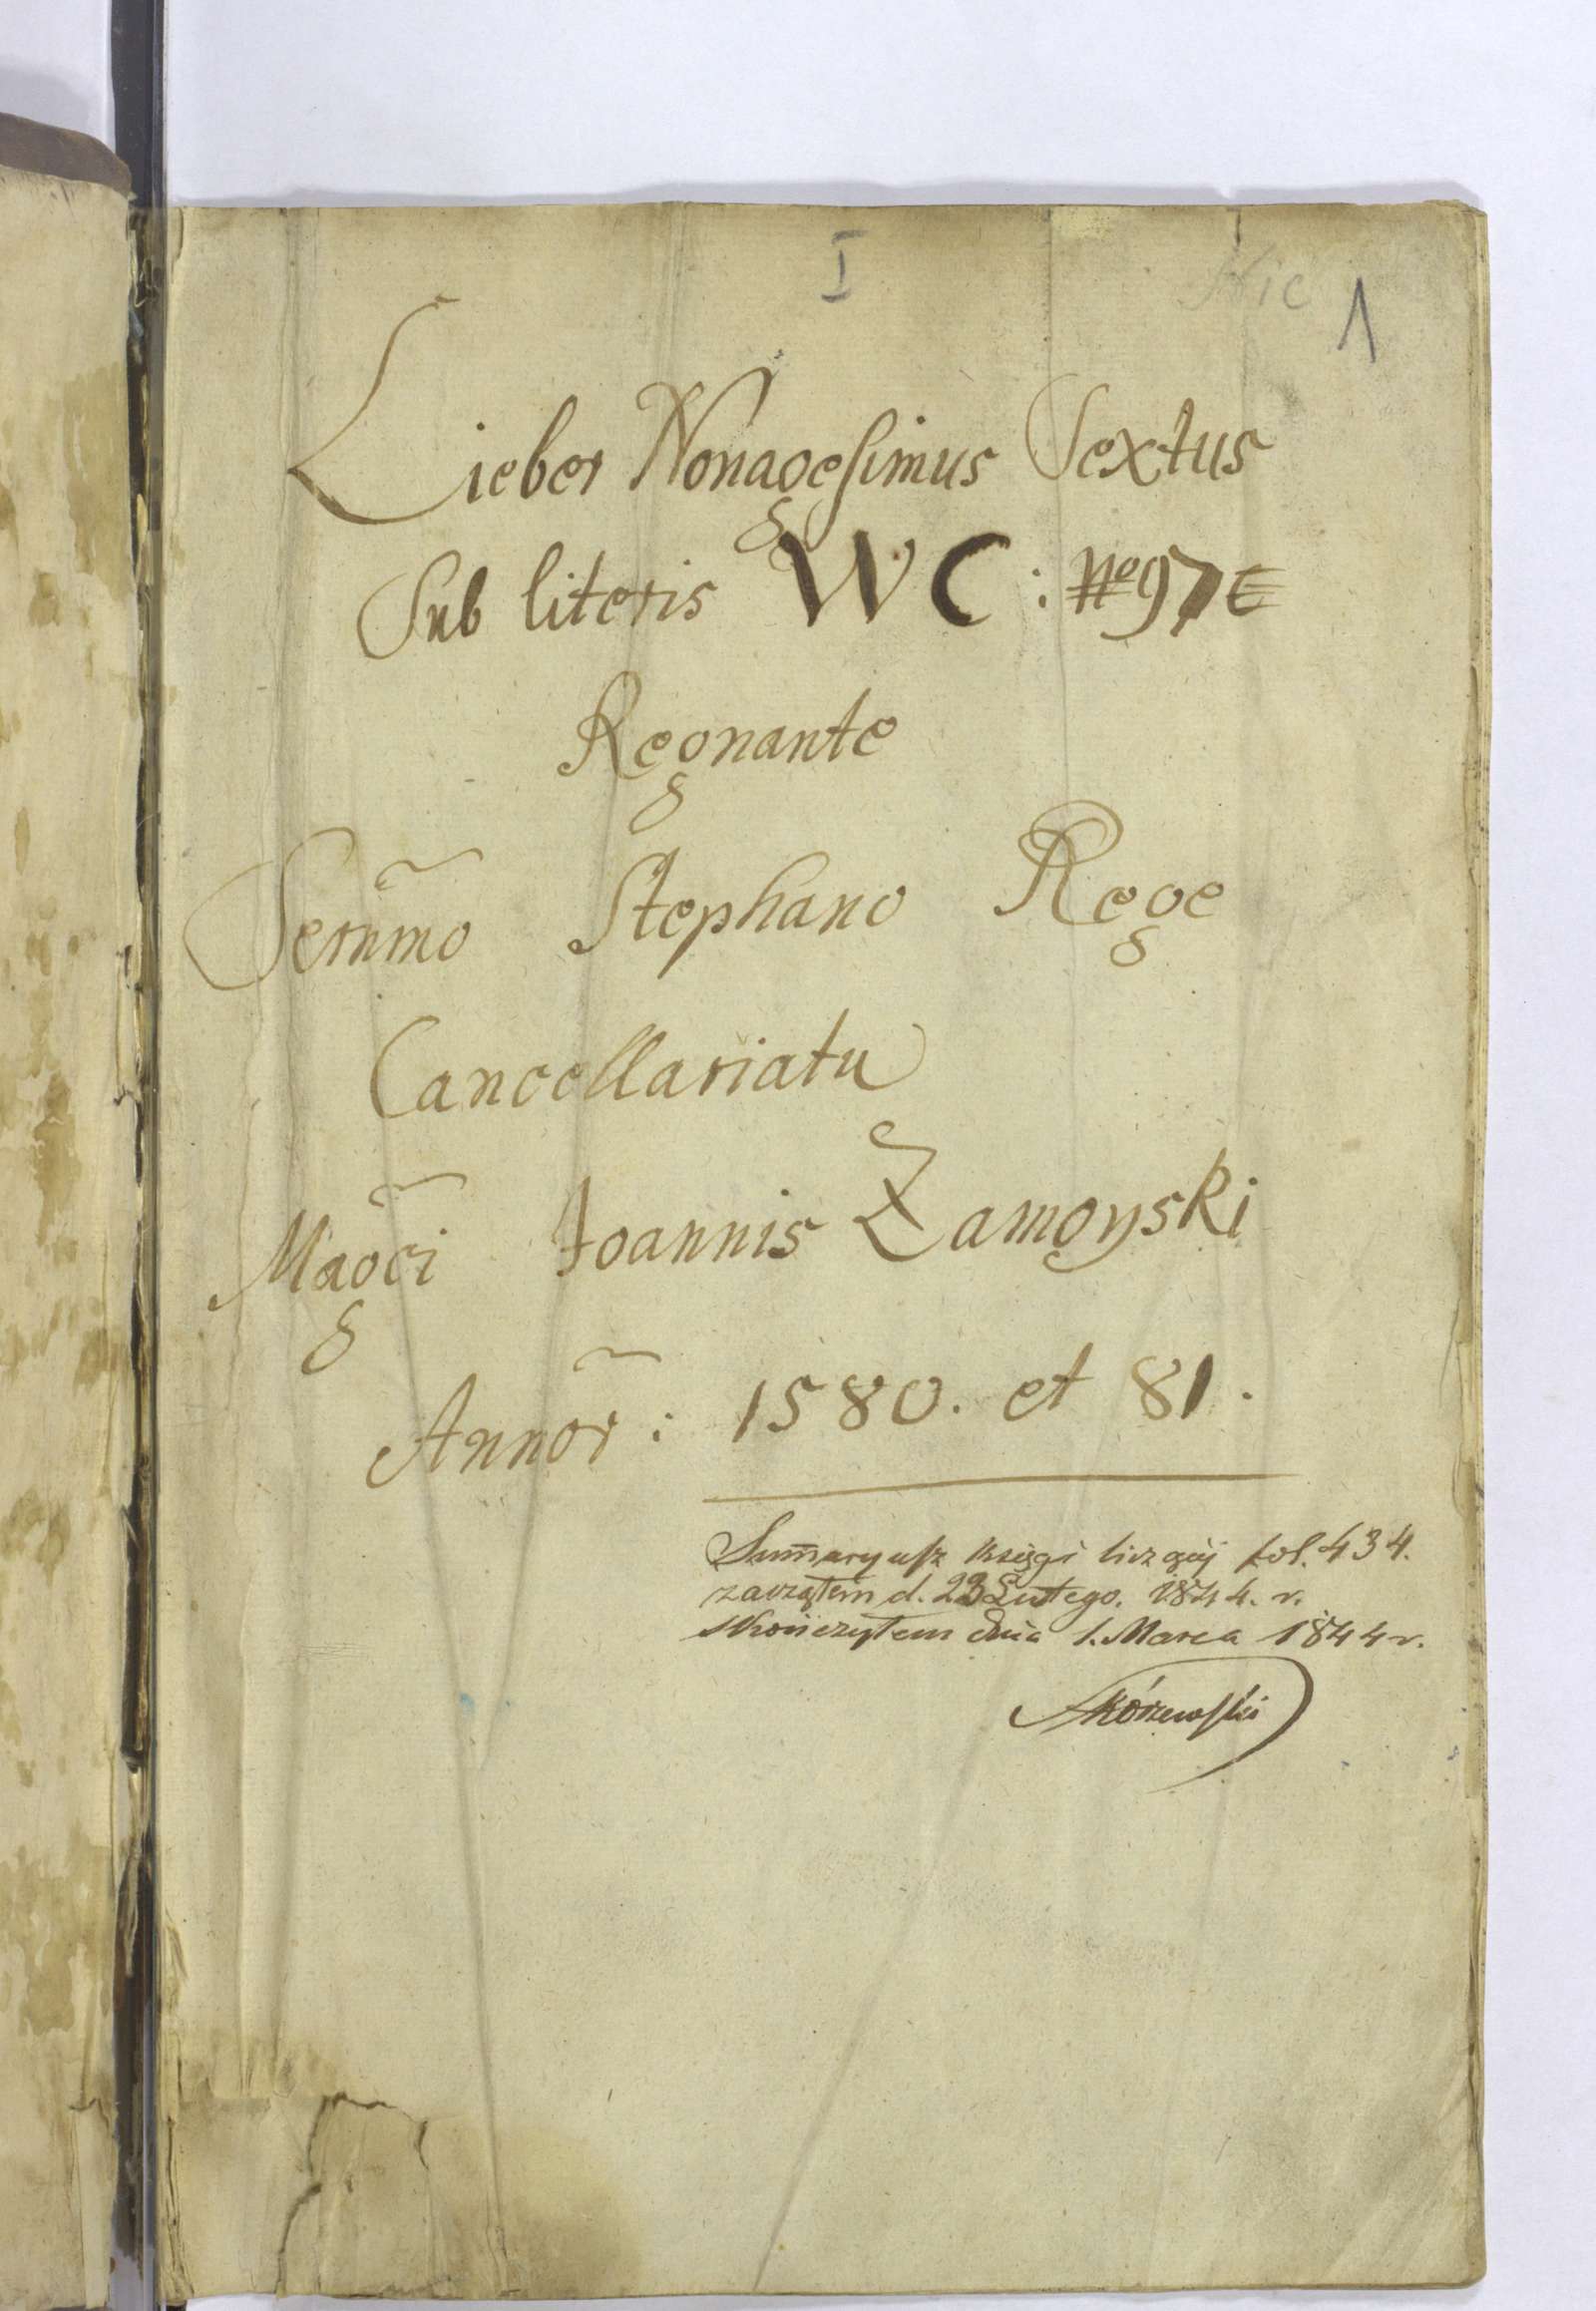 I
1
Lieber Nonagesimus Sextus
Sub literis WC: No 97
Regnante
Sern̄mo Stephano Rege
Cancellariatu
Mag̃ci Joannis Zamoyski
Annor̃: 1580. et 81.
Sum̄aryusz księgi liczącéj fol. 434.
zacząłem d. 23 Lutego. 1844. r.
skończyłem dnia 1. Marca 1844 r.
Skórzewski